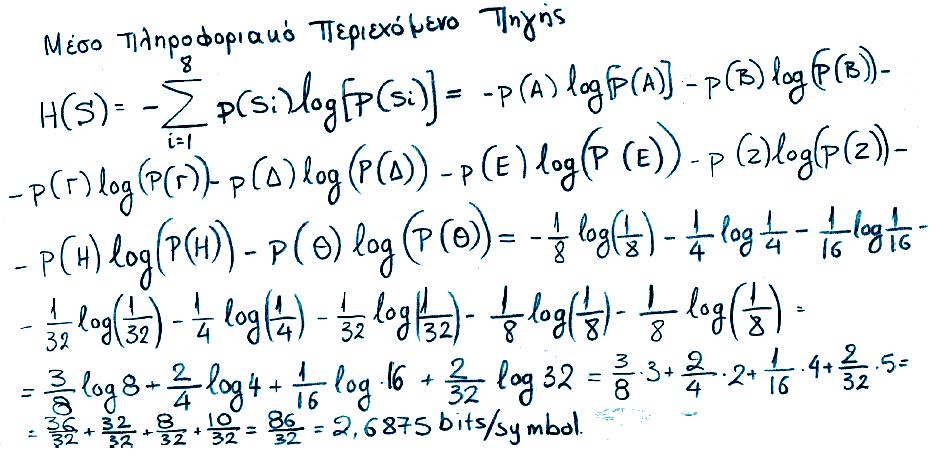 Μέσο Πληροφοριακό Περιεχόμενο Πηγής
H(S) = - 8∑i=1 p(Si) log[P(Si)] = -p(A) log[P(A)] - p(B) log(P(B)) -
- p(Γ) log(P(Γ)) - p(Δ) log(P(Δ)) - p(E) log(P(E)) - p(Z) log(p(Z)) -
- P(H) log(P(H)) - p(Θ) log(P(Θ)) = - 1/8 log(1/8) - 1/4 log 1/4 - 1/16 log 1/16 -
- 1/32 log(1/32) - 1/4 log(1/4) - 1/32 log(1/32) - 1/8 log(1/8) - 1/8 log(1/8) =
= 3/8 log 8 + 2/4 log 4 + 1/16 log·16 + 2/32 log 32 = 3/8 · 3 + 2/4 · 2 + 1/16 · 4 + 2/32 · 5 =
= 36/32 + 32/32 + 8/32 + 10/32 = 86/32 = 2,6875 bits/symbol.